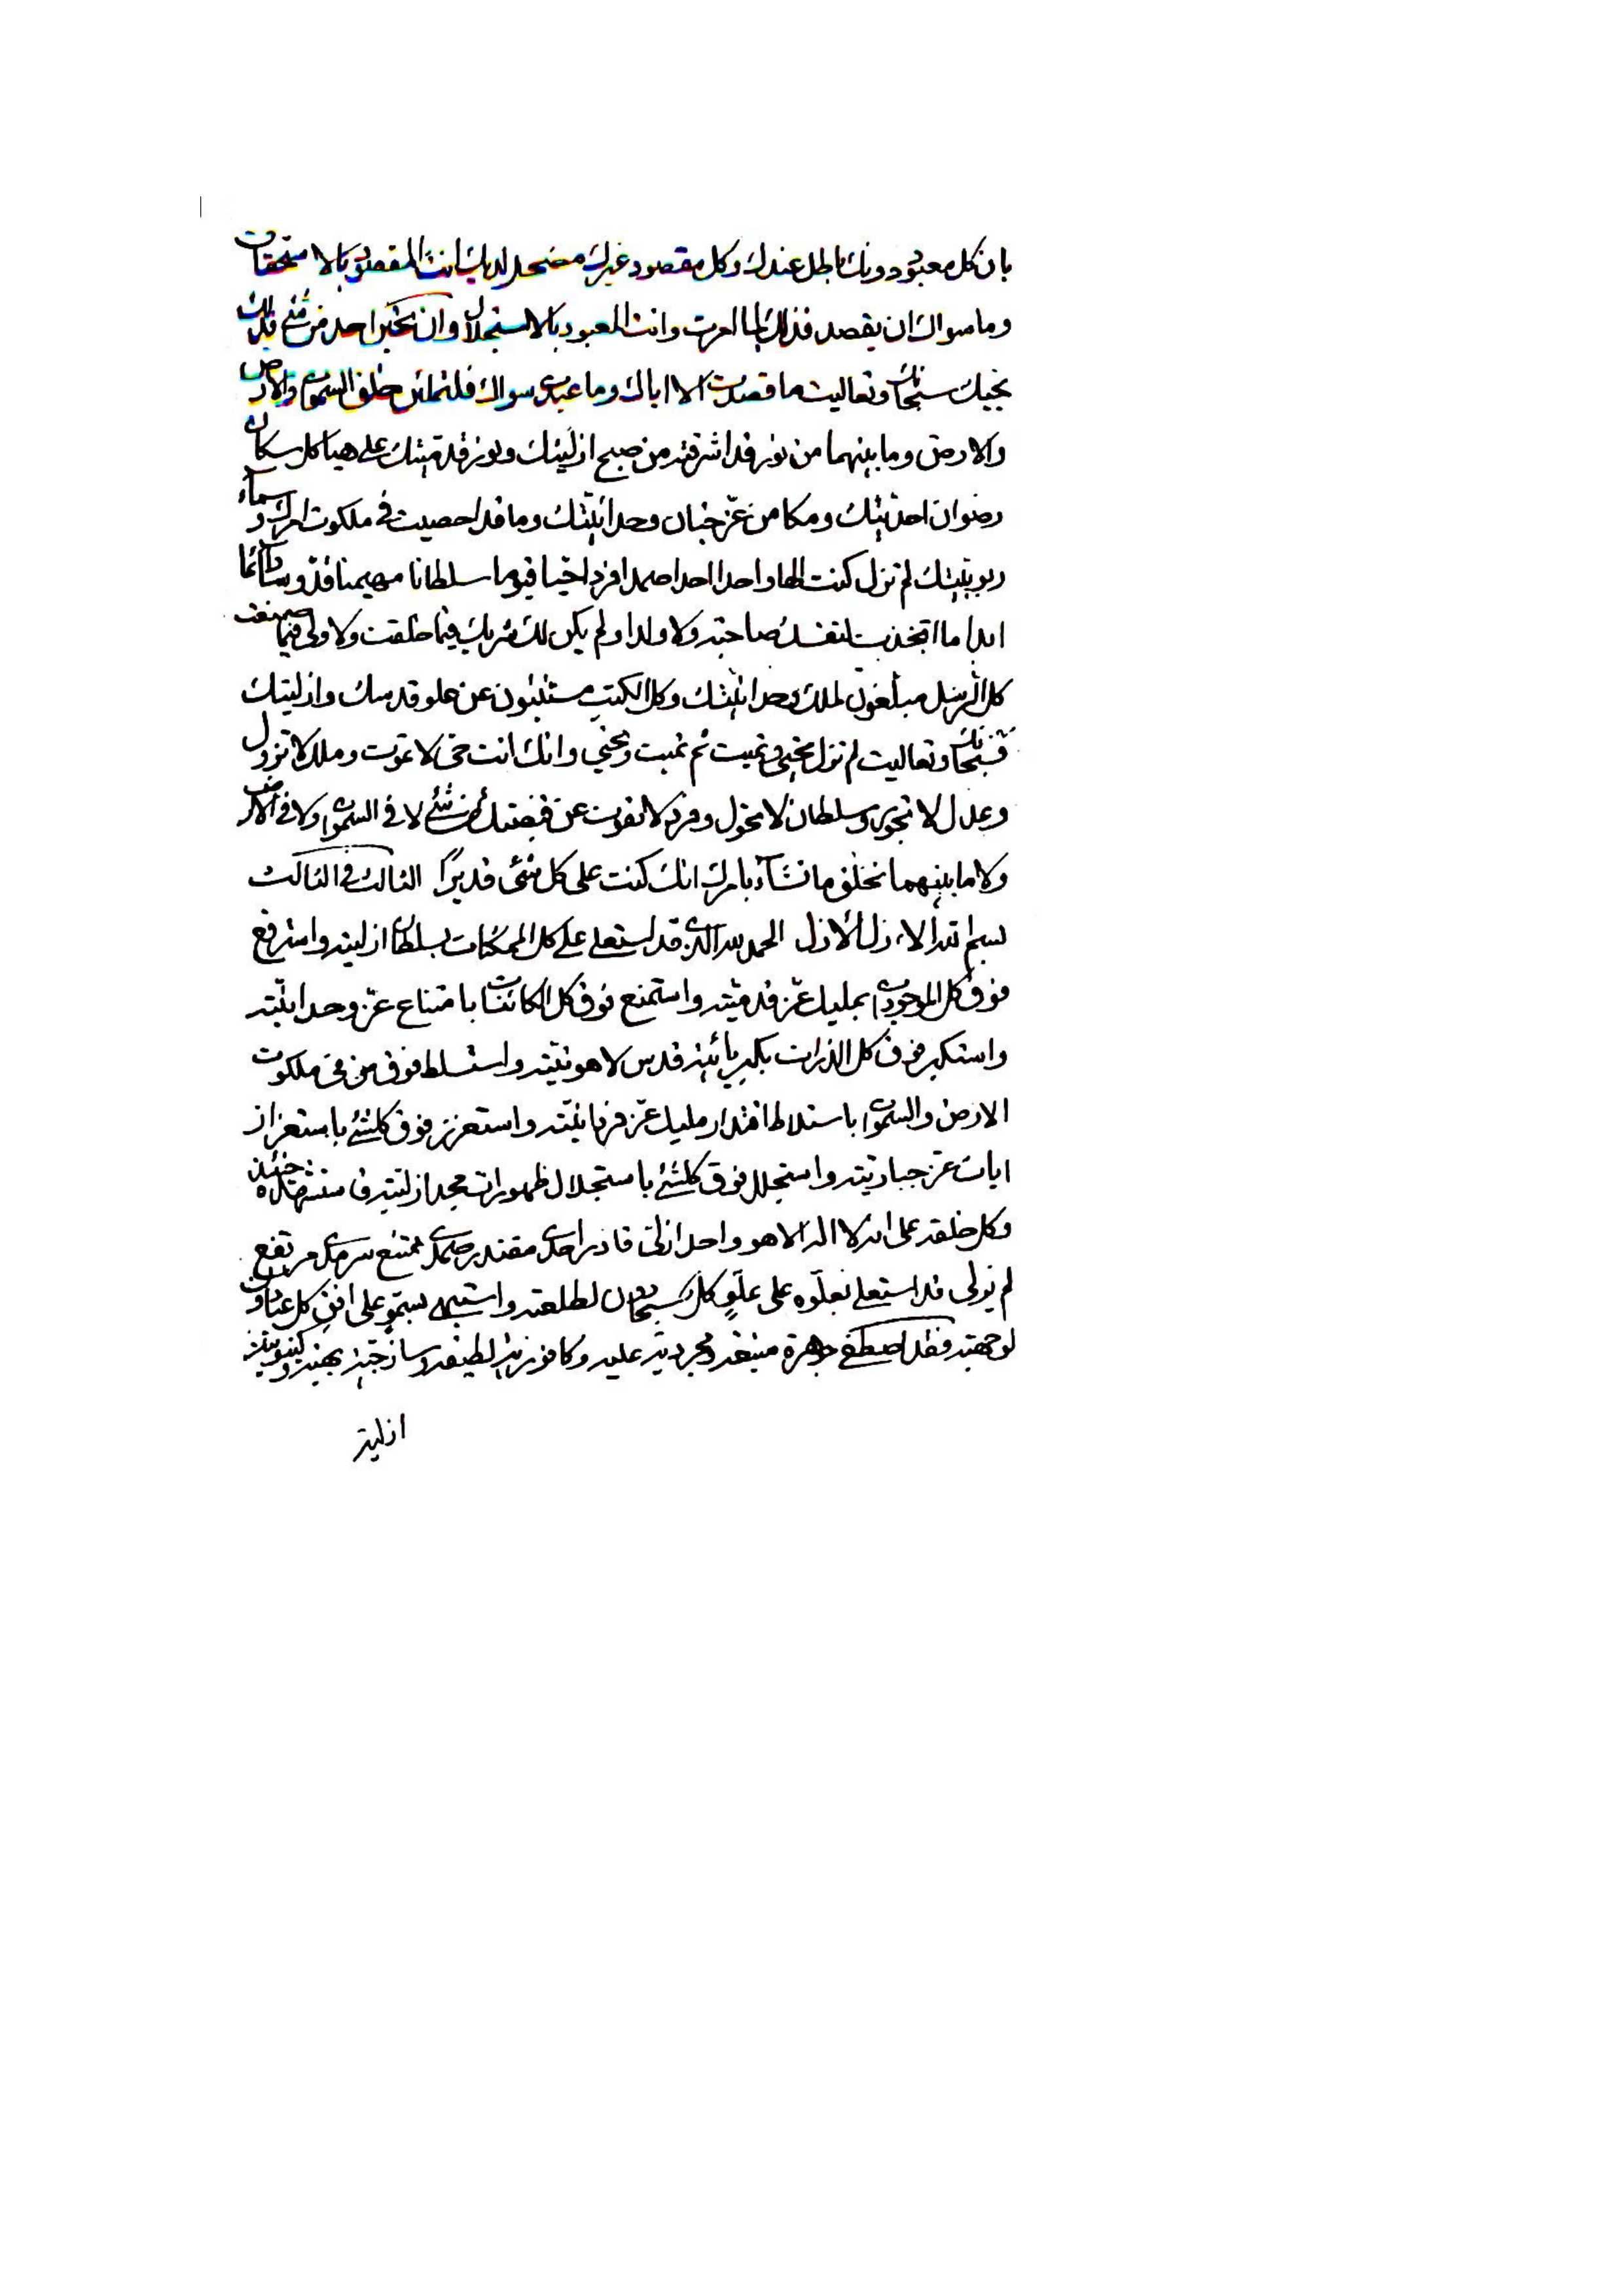 بان كل معبود دونك باطل عندك وكل مقصود غيرك مضمحل لديك انت المقصود بالاستحقاق
وما سواك ان يقصد فذلك لما امرت وانت المعبود بالاستجلال وان احد من شئ فلك
سبحانك وتعاليت ما قصدت الا اياك وما عبدت سواك فلتملئن خلق السموات والارض
والارض وما بينهما من نور قد اشرقته من صبح ازليتك ونور قدميتك على هياكل سكان
رضوان احديتك ومكامن عز وحدانيتك وما قد احصيت فى ملكوت امرك وسماء
ربوبيتك لم تزل كنت الها واحدا احدا صمدا فردا حيا قيوما سلطانا مهيمنا قدوسا دائما
ابدا ما اتخذت لنفسك صاحبة ولا ولدا ولم يكن لك شريك فيما خلقت ولا ولى فيما صنعت
كل الرسل مبلغون وحدانيتك وكل الكتب عن علو قدسك وازليتك
فسبحانك وتعاليت لم تزل تحيى وتميت ثم تميت وتحيى وانك انت حى لا تموت وملك لا تزول
وعدل لا تجور وسلطان لا تحول وفرد لا يفوت عن قبضتك من شئ لا فى السموات ولا فى الارض
ولا ما بينهما تخلق ما تشاء بامرك انك كنت على كل شئ قديرا الثالث فى الثالث
بسم الله الازل الازل الحمد لله الذى قد استعلى على كل الممكنات بسلطان ازليته واسترفع
فوق كل الموجودات بمليك عز قدميته واستمنع فوق كل الكائنات بامتناع عز وحدانيته
واستكبر فوق كل الذرات بكبريائية قدس لاهوتيته واستسلط فوق من فى ملكوت
الارض والسموات باستلاط اقتدار مليك عز فردانيته واستعزز فوق كلشئ باستعزاز
ايات عز جباريته واستجلل فوق كلشئ باستجلال ظهورات مجد ازليته فاستشهده حينئذ
وكل خلقه على انه لا اله الا هو واحد ازلى قادر احدى مقتدر صمدى ممتنع سرمدى مرتفع
لم يزلى قد استعلى بعلوه على علو كل لطلعته بسموه على افق كل
لوجهته فقد اصطفى جوهرة منيعة ومجردية علية وكافورية لطيفة وساذجية بهية وكينونية
ازلية